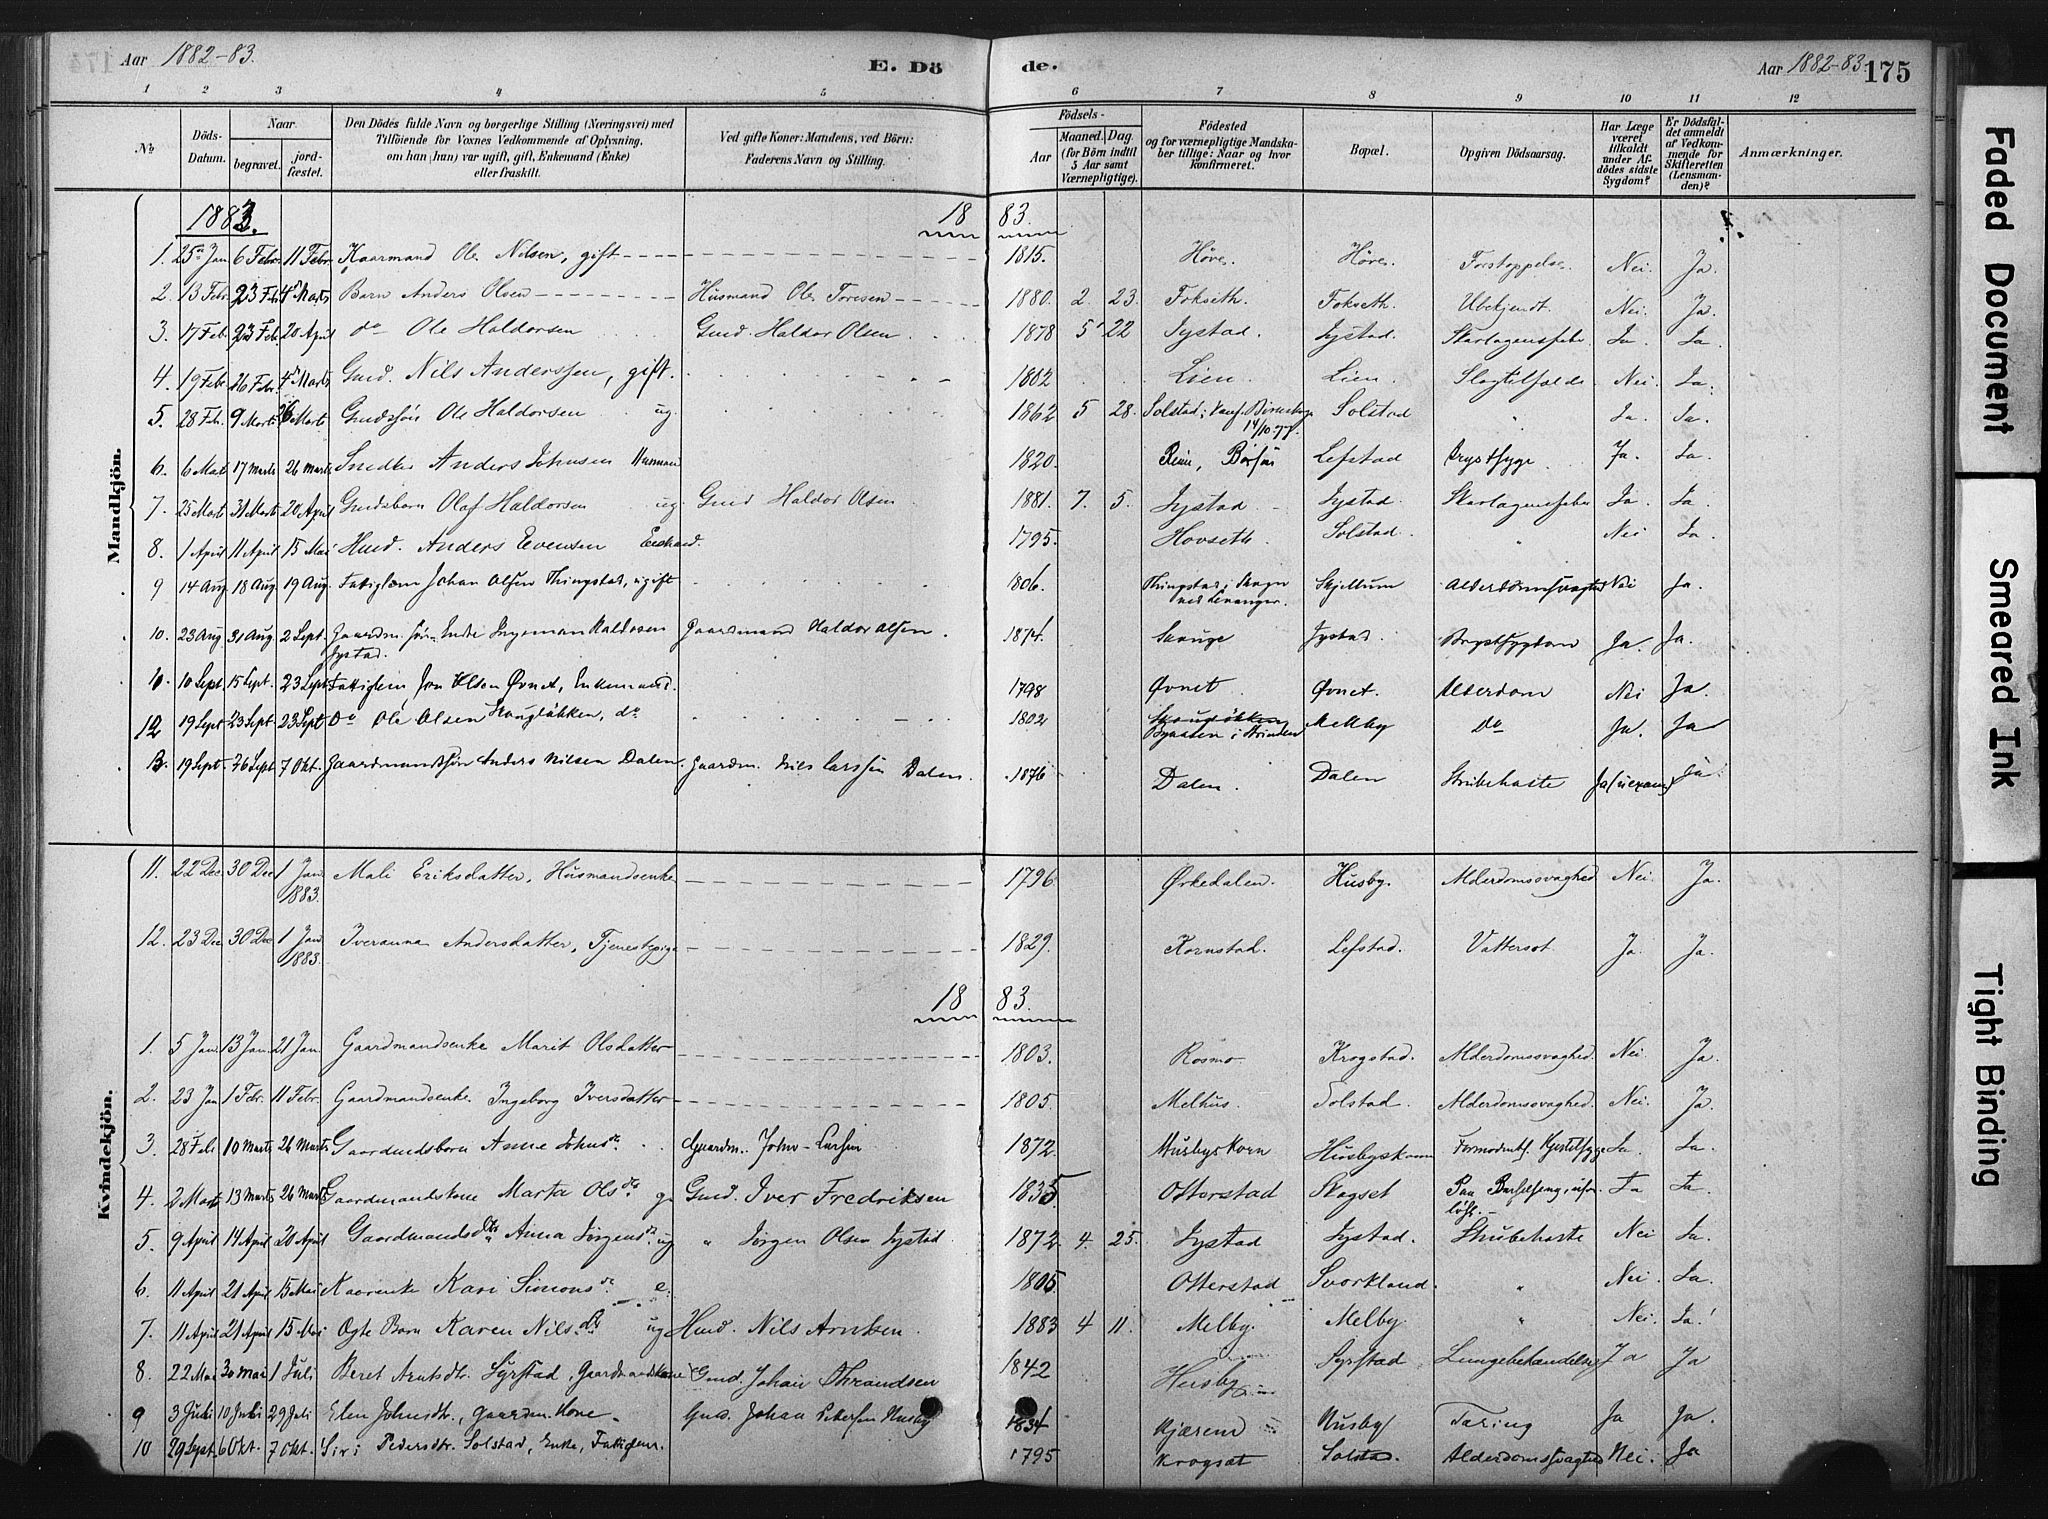 Aar 1882-83. E. Dö de. Aar 1882-83. 175
1 2 3 4 5 6 7 8 9 10 11 12
No Döds-Datum. Naar begravet. jord-fæstet. Den Dödes fulde Navn og borgerlige Stilling (Næringsvei) med Tilföiende for Voxnes Vedkommende af Oplysning, om han (hun) var ugift, gift, Enkemand (Enke) eller fraskilt. Ved gifte Koner: Mandens, ved Börn: Faderens Navn og Stilling. Födsels- Aar Maaned. Dag. (for Börn indtil 5 Aar samt Værnepligtige). Födested og for værnepligtige Mandskaber tillige: Naar og hvor konfirmeret. Bopæl. Opgiven Dödsaarsag. Har Læge været tilkaldt under Afdödes sidste Sygdom? Er Dödsfaldet anmeldt af Vedkommende for Skifteretten (Lensmanden)? Anmærkninger.
Mandkjön.
1883. 18 83.
1. 25de Jan 6 Febr. 11 Febr. Kaarmand Ole Nilsen, gift 1815. Höve. Höve. Forstoppelse. Nei. Ja.
2. 13 Febr. 23 Feb. 4de Marts Barn Anders Olsen Husmand Ole Toresen 1880. 2. 23. Fokseth. Fokseth. Ubekjendt. Nei. Ja.
3. 17 Feb. 23 Feb. 20 April do Ole Haldorsen Gmd. Haldor Olsen 1878 5 22 Systad. Systad. Skarlagensfeber Ja. Ja.
4. 19 Feb. 26 Febr. 4de Marts Gmd. Nils Anderssen, gift. 1802 Lien. Lien. Slagtilfælde Nei. Ja.
5. 28 Feb. 9 Marts 26 Marts Gmdssön Ole Haldorsen ug. 1862 5 28. Solstad; 14/10.77. Solstad " Ja. Ja.
6. 6 Mart 17 Marts 26 Marts Snedker Anders Johnsen 1820. Börsen Lefstad Brystsyge. Ja. Ja.
7. 25 Marts 31 Marts 20 April Gmdsbarn Olaf Haldorsen ug. Gmd Haldor Olsen 1881. 7. 5. Systad. Systad. Skarlagensfeber Ja Ja
8. 1 April 11 April 15 Mai Husmd. Anders Evensen 1795. Hovseth Solstad. " Nei Ja.
9 14 Aug. 18 Aug. 19 Aug. Fattiglem Johan Olsen Thingstad, ugift 1806. Thingstad i Skogn ved Levanger. Skjellum Alderdomssvaghed Nei Ja.
10. 23 Aug. 31 Aug. 2 Sept. Gaardm. sön Endre Ingeman Haldorsen Systad. Gaardmand Haldor Olsen. 1874. Systad. Brystsygdom Ja. Ja.
10. 10 Sept. 15 Sept. 23 Sept. Fattiglem Jon Olsen Øvnet, Enkemand. 1798 Øvnet. Øvnet. Alderdom Nei Ja.
12 19 Sept 23 Sept 23 Sept Do Ole Olsen Skougløkken, do 1802 Skougløkken Byaasen i Strinden Melhby Do Ja. Ja
13. 19 Sept 26 Sept 7 Okt. Gaardmandssön Anders Nilsen Dalen. Gaardm. Nils Larssen Dalen. 1876 Dalen. Dalen Strubehoste Ja Ja.
Kvindekjön.
11. 22 Dec 30 Dec 1 Jan 1883. Mali Eriksdatter, Husmandsenke 1796 Ørkedalen. Husby. Alderdomssvaghed Nei. Ja.
12. 23 Dec 30 Dec 1 Jan 1883. Iveranna Andersdatter, Tjenestepige 1829. Kornstad. Lefstad. Vattersot. Ja. Ja.
18 83.
1. 5 Jan. 13 Jan. 21 Jan. Gaardmandsenke Marit Olsdatter 1803. Rosmo. Krogstad. Alderdomssvaghed. Nei. Ja.
2. 23 Jan 1 Febr. 11 Febr. Gaardmandsenke Ingeborg Iversdatter 1805. Melhus. Solstad. Alderdomssvaghed. Nei. Ja.
3. 28 Feb 10 Marts 26 Marts Gaardmdsbarn Anne Johnsdr. Gaardm. John Larsen 1872. Husbyskorn Husbyskorn Formodentl. Kjertelsyge Ja. Ja.
4. 2 Marts 13 Marts 26 Marts Gaardmandskone Marta Olsdr. g. Gmd. Iver Fredriksen 1835 Otterstad Skogset Paa Barselseng, uforløst. Ja Ja.
5. 9 April 14 April 20 April Gaardmandsdtr. Anna Jörgensdr. ug " Jörgen Olsen Systad. 1872. 4. 25. Systad Systad. Strubehoste Nei Ja.
6. 11 April 21 April 15 Mai Kaarenke Kari Simonsdr. e. 1805. Otterstad Svorkland. " Nei. Ja.
7. 11 April 21 April 15 Mai Ægte Barn Karen Nilsdr. ug Husmd. Nils Arntsen. 1883 4 11. Melby. Melby. " Nei. Ja.
8. 22 Mai 30 Mai 1 Juli Beret Arntsdtr. Syrstad, Gaardmandskone Gmd. Johan Thrandsen 1842 Husby Syrstad Lungebetændelse Ja Ja
9 3 Juli 10 Juli 29 Juli Elen Johnsdtr., Gaardm. Kone. Gmd. Johan Petersen Husby 1834 Kjærem Husby Tæring Ja Ja.
10 29 Sept. 6 Okt. 7 Okt. Siri Pedersdtr. Solstad, Enke, Fattiglem. 1795 Krogsat Solstad. Alderdomssvaghed Nei. Ja
Faded Document
Smeared Ink
Tight Binding